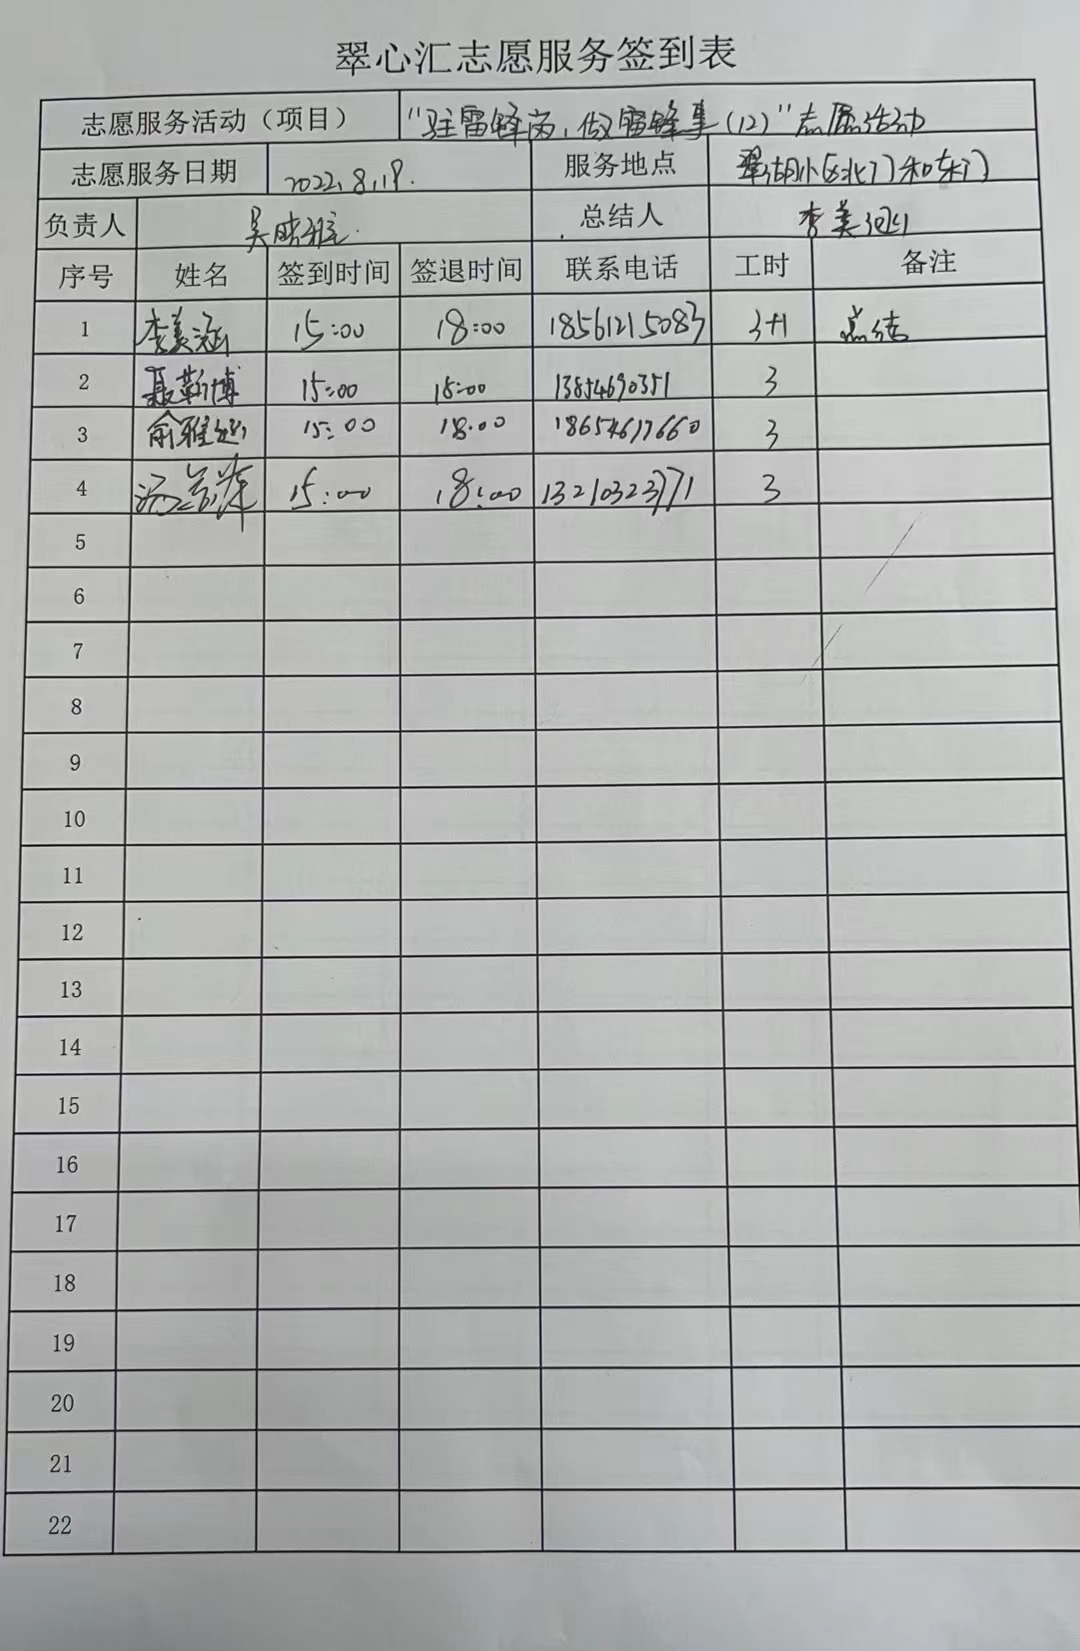 翠心汇志愿服务签到表
志愿服务活动（项目） "驻雷锋岗，做雷锋事(12)"志愿活动
志愿服务日期 2022.8.19. 服务地点 翠湖小区北门和东门
负责人 吴 雅 总结人 李美涵
序号 姓名 签到时间 签退时间 联系电话 工时 备注
1 李美涵 15:00 18:00 18561215083 3+1 总结
2 聂靳博 15:00 18:00 13854690351 3
3 俞雅涵 15:00 18:00 18654617660 3
4 15:00 18:00 13210323771 3
5
6
7
8
9
10
11
12
13
14
15
16
17
18
19
20
21
22